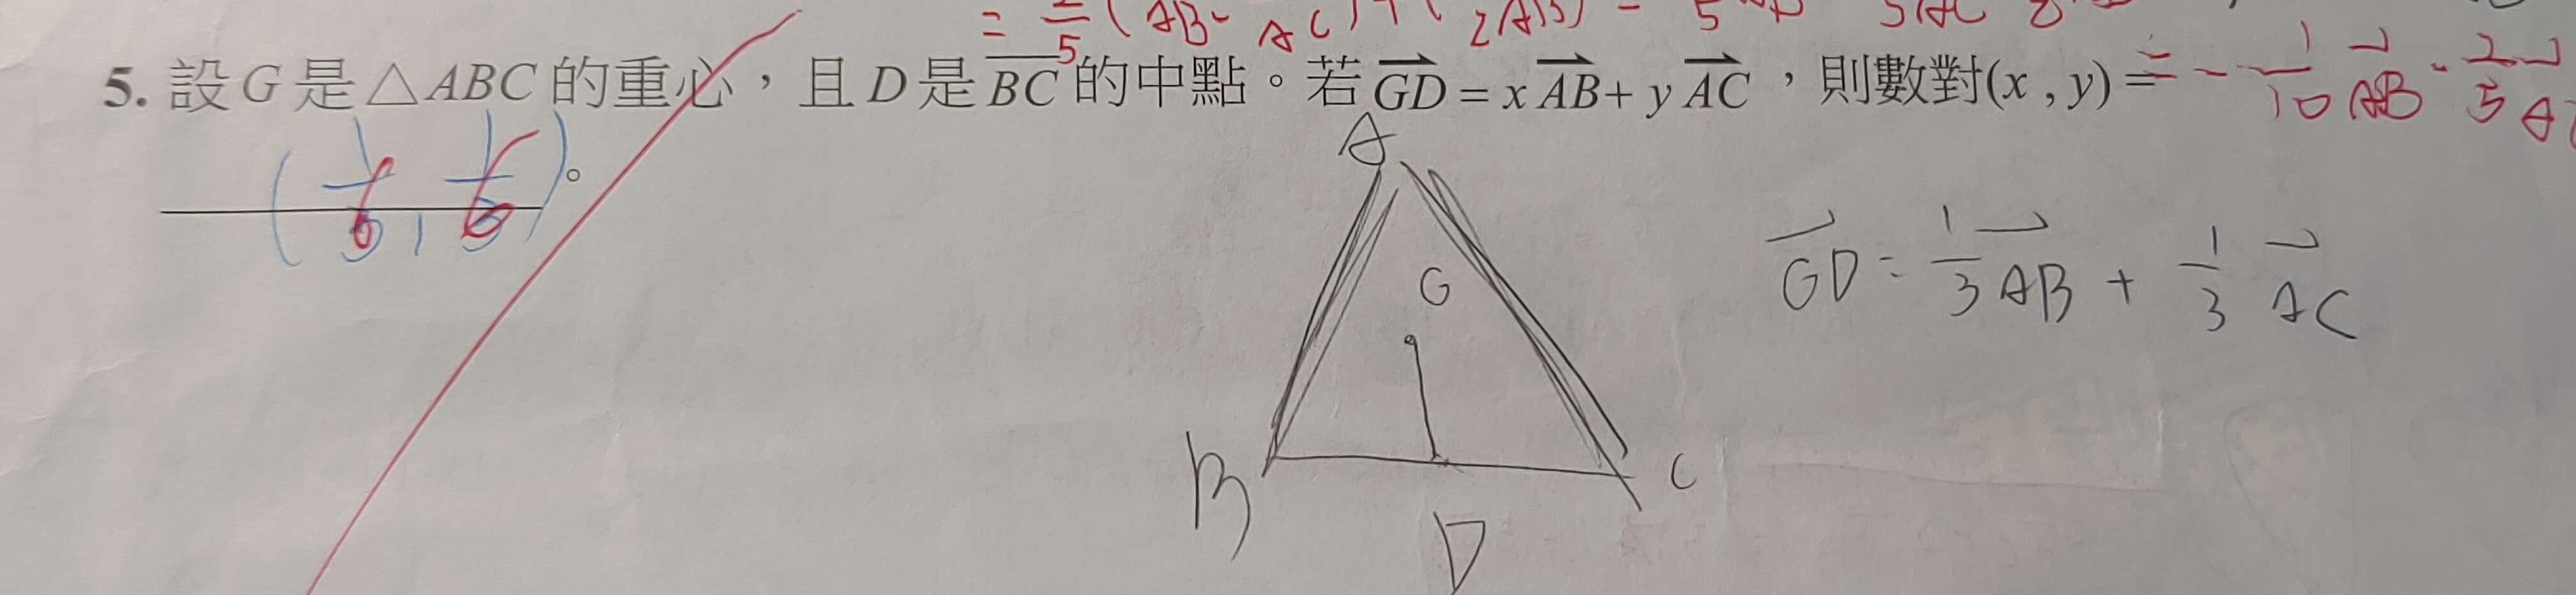 = 2/5 (AB - AC) + ( 2AB) -
5. 設G是△ABC的重心,且D是BC的中點。若GD=xAB+yAC,則數對(x,y)= = -1/10 AB - 2/5 A
(1/6, 1/6)。
A
G
GD = 1/3 AB + 1/3 AC
B
C
D